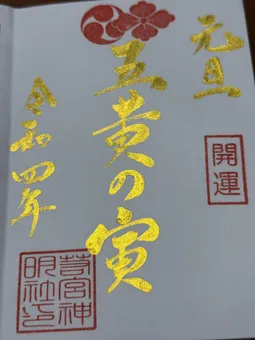 元旦
開運
五黄の寅
令和四年
宮神
明社印